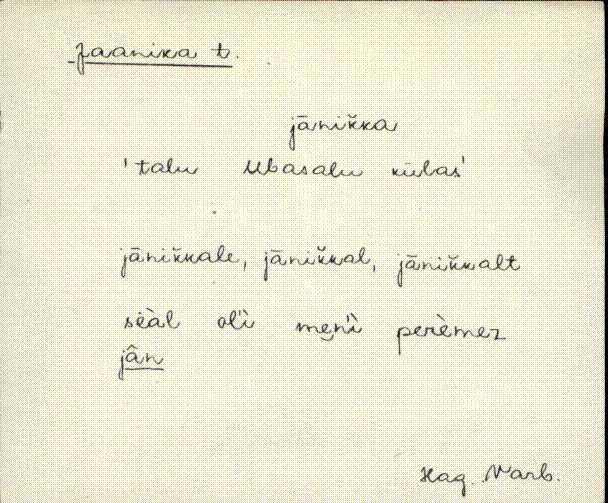 Jaanika t.
jānik̆ka
'talu Ubasalu külas'
jānik̆kale, jānik̆kal, jānik̆kalt
sèàl olì menì perèmez
jân
Hag. Varb.